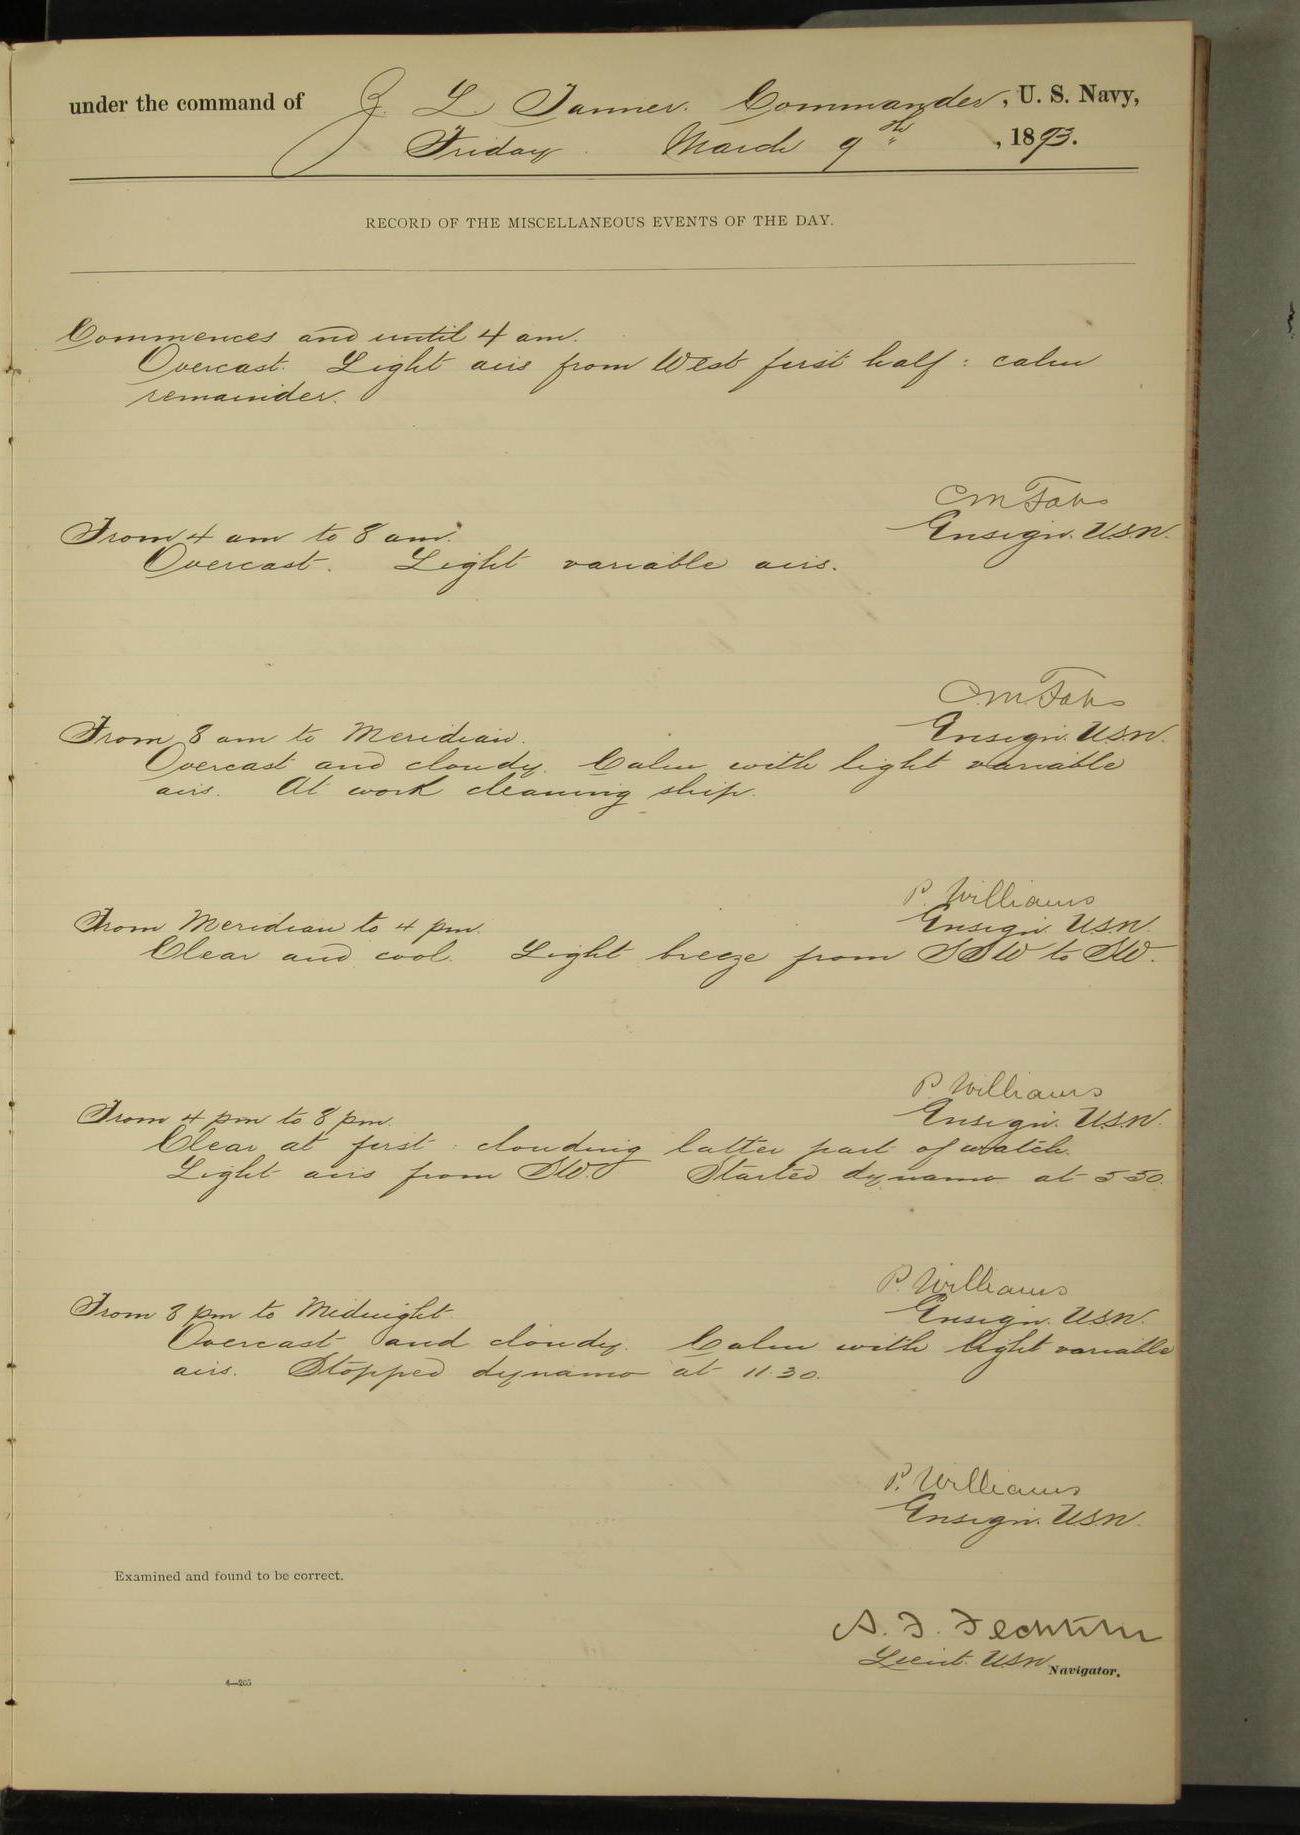 under the command of Z. L. Tanner. Commander, U. S. Navy,
Friday. March 9th, 1893.
RECORD OF THE MISCELLANEOUS EVENTS OF THE DAY.
Commences and until 4 am.
Overcast. Light airs from West first half: calm
remainder.
C M Fahs
Ensign. U.S.N.
From 4 am to 8 am.
Overcast. Light variable airs.
C. M. Fahs
Ensign. U.S.N.
From 8 am to Meridian.
Overcast and cloudy. Calm with light variable
airs. At work cleaning ship.
P. Williams
Ensign. U.S.N.
From Meridian to 4 pm.
Clear and cool. Light breeze from SSW to SW.
P Williams
Ensign. U.S.N.
From 4 pm to 8 pm.
Clear at first: clouding latter part of watch.
Light airs from SW. Started dynamo at 5 50.
P. Williams
Ensign. U.S.N.
From 8 pm to Midnight.
Overcast and cloudy. Calm with light variable
airs. Stopped dynamo at 11.30.
P. Williams
Ensign. U.S.N.
Examined and found to be correct.
A. F. Fechteler
Lieut. U.S.N. Navigator.
4—205